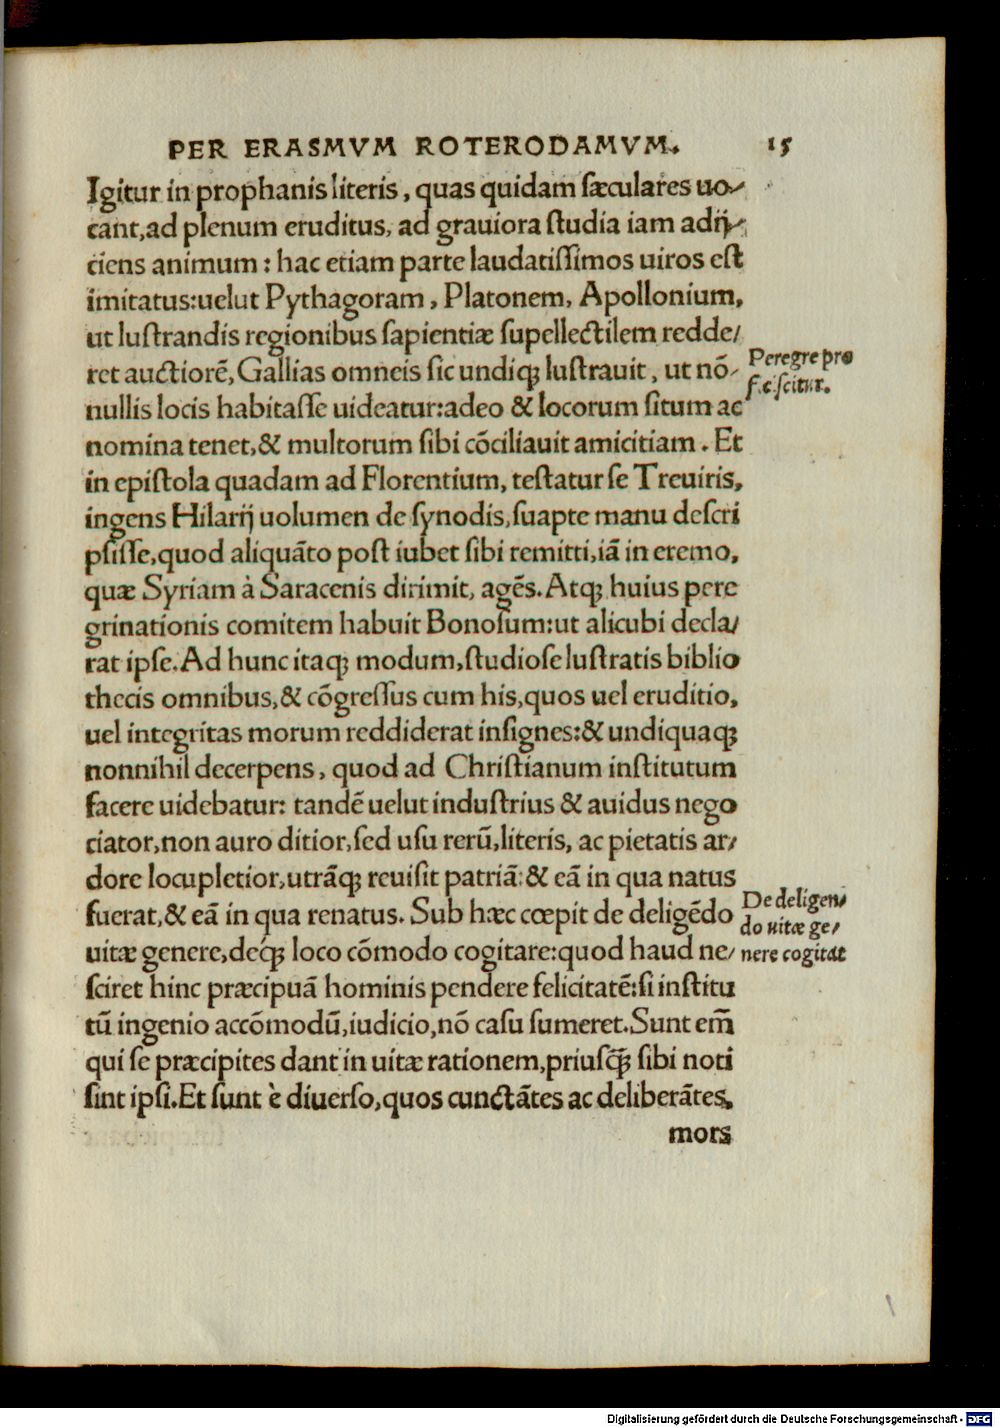 PER ERASMVM ROTERODAMVM. 15
Igitur in prophanis literis, quas quidam sæculares uo-
cant, ad plenum eruditus, ad grauiora studia iam adij-
ciens animum: hac etiam parte laudatissimos uiros est
imitatus: uelut Pythagoram, Platonem, Apollonium,
ut lustrandis regionibus sapientiæ supellectilem redde/
ret auctiorē, Gallias omneis sic undiqꝫ lustrauit, ut nō-
Peregre pro
ficiscitur.
nullis locis habitasse uideatur: adeo & locorum situm ac
nomina tenet, & multorum sibi cōciliauit amicitiam. Et
in epistola quadam ad Florentium, testatur se Treuiris,
ingens Hilarij uolumen de synodis, suapte manu descri
psisse, quod aliquāto post iubet sibi remitti, iā in eremo,
quæ Syriam à Saracenis dirimit, agēs. Atqꝫ huius pere
grinationis comitem habuit Bonosum: ut alicubi decla/
rat ipse. Ad hunc itaqꝫ modum, studiose lustratis biblio
thecis omnibus, & cōgressus cum his, quos uel eruditio,
uel integritas morum reddiderat insignes: & undiquaqꝫ
nonnihil decerpens, quod ad Christianum institutum
facere uidebatur: tandē uelut industrius & auidus nego
ciator, non auro ditior, sed usu rerū, literis, ac pietatis ar/
dore locupletior, utrāqꝫ reuisit patriā: & eā in qua natus
fuerat, & eā in qua renatus. Sub hæc cœpit de deligēdo
De deligen/
do uitæ ge/
nere cogitat
uitæ genere, deqꝫ loco cōmodo cogitare: quod haud ne/
sciret hinc præcipuā hominis pendere felicitatē: si institu
tū ingenio accōmodū, iudicio, nō casu sumeret. Sunt em̄
qui se præcipites dant in uitæ rationem, priusq̄ꝫ sibi noti
sint ipsi. Et sunt è diuerso, quos cunctātes ac deliberātes,
mors
Digitalisierung gefördert durch die Deutsche Forschungsgemeinschaft - DFG